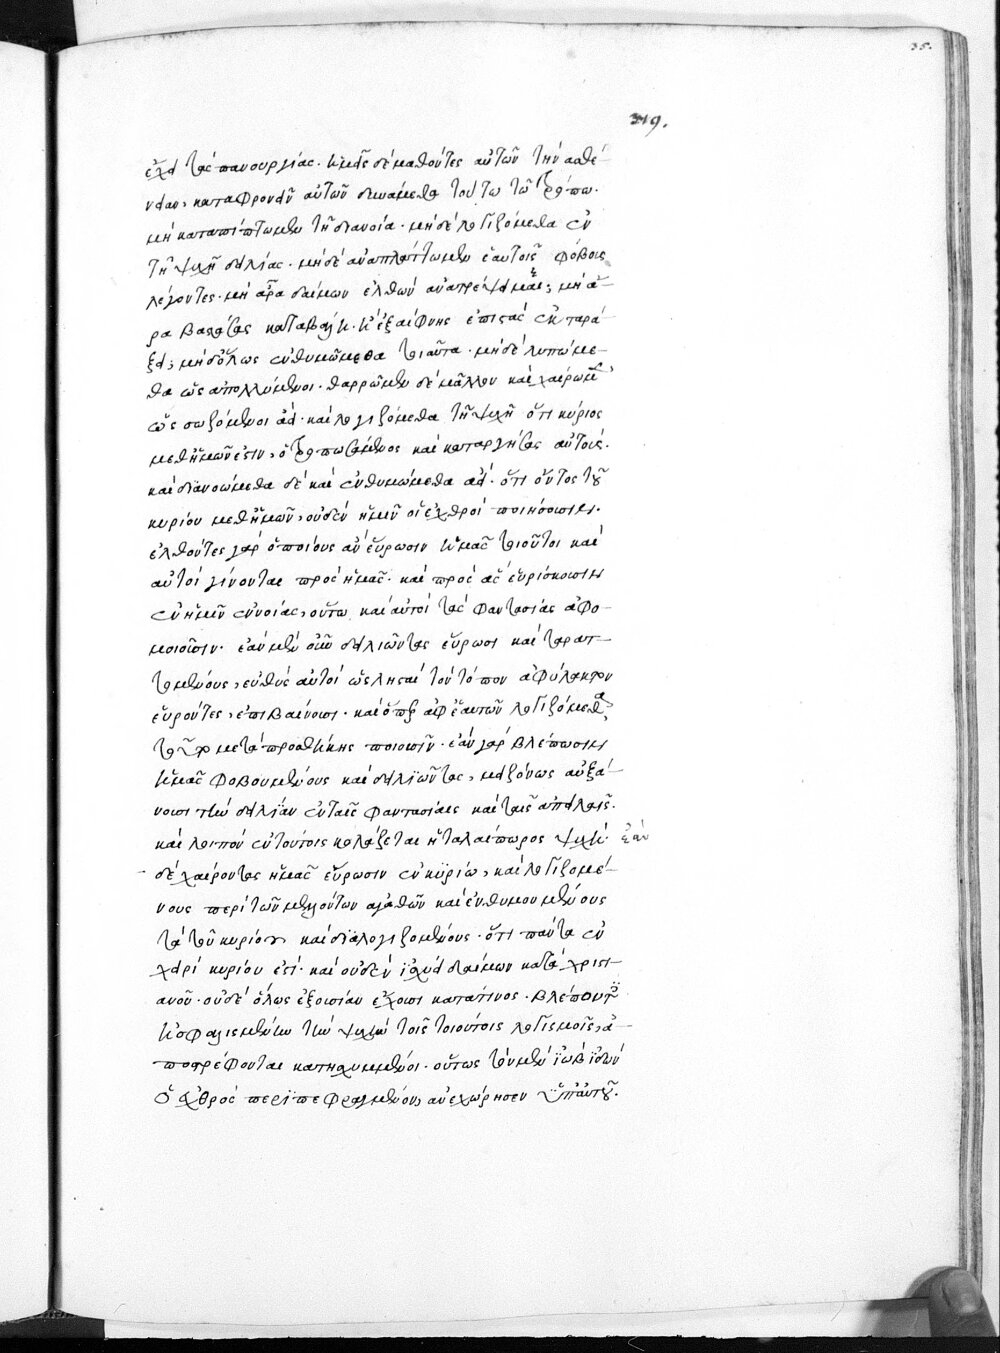 35.
319.
ἔχει τὰς πανουργίας. ἡμᾶς δὲ μαθόντες αὐτῶν τὴν ἀσθέ-
νειαν, καταφρονεῖν αὐτῶν δυνάμεθα τούτω τῶ τρόπω.
μὴ καταπίπτωμεν τῆ διανοία. μηδὲ λογιζόμεθα ἐν
τῆ ψυχῆ δειλίας. μηδὲ ἀναπλάττωμεν ἑαυτοῖς φόβους
λέγοντες. μὴ ἆρα δαίμων ἐλθὼν ἀνατρέψει με; μὴ ἄ-
ρα βαστάσας καταβάλη. ἢ ἐξαίφνης ἐπιστὰς ἐκταρά-
ξει; μηδ' ὅλως ἐνθυμώμεθα τοιαῦτα. μηδὲ λυπώμε-
θα ὡς ἀπολλύμενοι. θαρρῶμεν δὲ μᾶλλον καὶ χαίρωμεν
ὡς σωζόμενοι ἀεί. καὶ λογιζόμεθα τῆ ψυχῆ ὅτι κύριος
μεθ' ἡμῶν ἐστιν, ὁ τροπωσάμενος καὶ καταργήσας αὐτούς.
καὶ διανοώμεθα δὲ καὶ ἐνθυμώμεθα ἀεί. ὅτι ὄντος τοῦ
κυρίου μεθ' ἡμῶν, οὐδὲν ἡμῖν οἱ ἐχθροὶ ποιήσουσιν.
ἐλθόντες γὰρ ὁποίους ἂν εὕρωσιν ἡμᾶς τοιοῦτοι καὶ
αὐτοὶ γίνονται πρὸς ἡμᾶς. καὶ πρὸς ἃς εὑρίσκουσιν
ἐν ἡμῖν ἐννοίας, οὕτω καὶ αὐτοὶ τὰς φαντασίας ἀφο-
μοιοῦσιν. ἐὰν μὲν οὖν δειλιῶντας εὕρωσι καὶ ταρατ-
τομένους, εὐθὺς αὐτοὶ ὡς λησταὶ τὸν τόπον ἀφύλακτον
εὑρόντες, ἐπιβαίνουσι. καὶ ὅπερ ἀφ' ἑαυτῶν λογιζόμεθα,
τοῦτο μετὰ προσθήκης ποιοῦσιν. ἐὰν γὰρ βλέπωσιν
ἡμᾶς φοβουμένους καὶ δειλιῶντας, μειζόνως αὐξά-
νουσι τὴν δειλίαν ἐν ταῖς φαντασίαις καὶ ταῖς ἀπειλαῖς.
καὶ λοιπὸν ἐν τούτοις κολάζεται ἡ ταλαίπωρος ψυχή. ἐὰν
δὲ χαίροντας ἡμᾶς εὕρωσιν ἐν κυρίω, καὶ λογιζομέ-
νους περὶ τῶν μελλόντων ἀγαθῶν καὶ ἐνθυμουμένους
τὰ τοῦ κυρίου καὶ διαλογιζομένους. ὅτι πάντα ἐν
χειρὶ κυρίου ἐστί. καὶ οὐδὲν ἰσχύει δαίμων κατὰ χριστι-
ανοῦ. οὐδὲ ὅλως ἐξουσίαν ἔχουσι κατά τινος. βλέποντες
ἠσφαλισμένην τὴν ψυχὴν τοῖς τοιούτοις λογισμοῖς, ἀ-
ποστρέφονται κατησχυμμένοι. οὕτως τὸν μὲν ἰὼβ ἰδὼν
ὁ ἐχθρὸς περιπεφραγμένον, ἀνεχώρησεν ἀπ' αὐτοῦ.